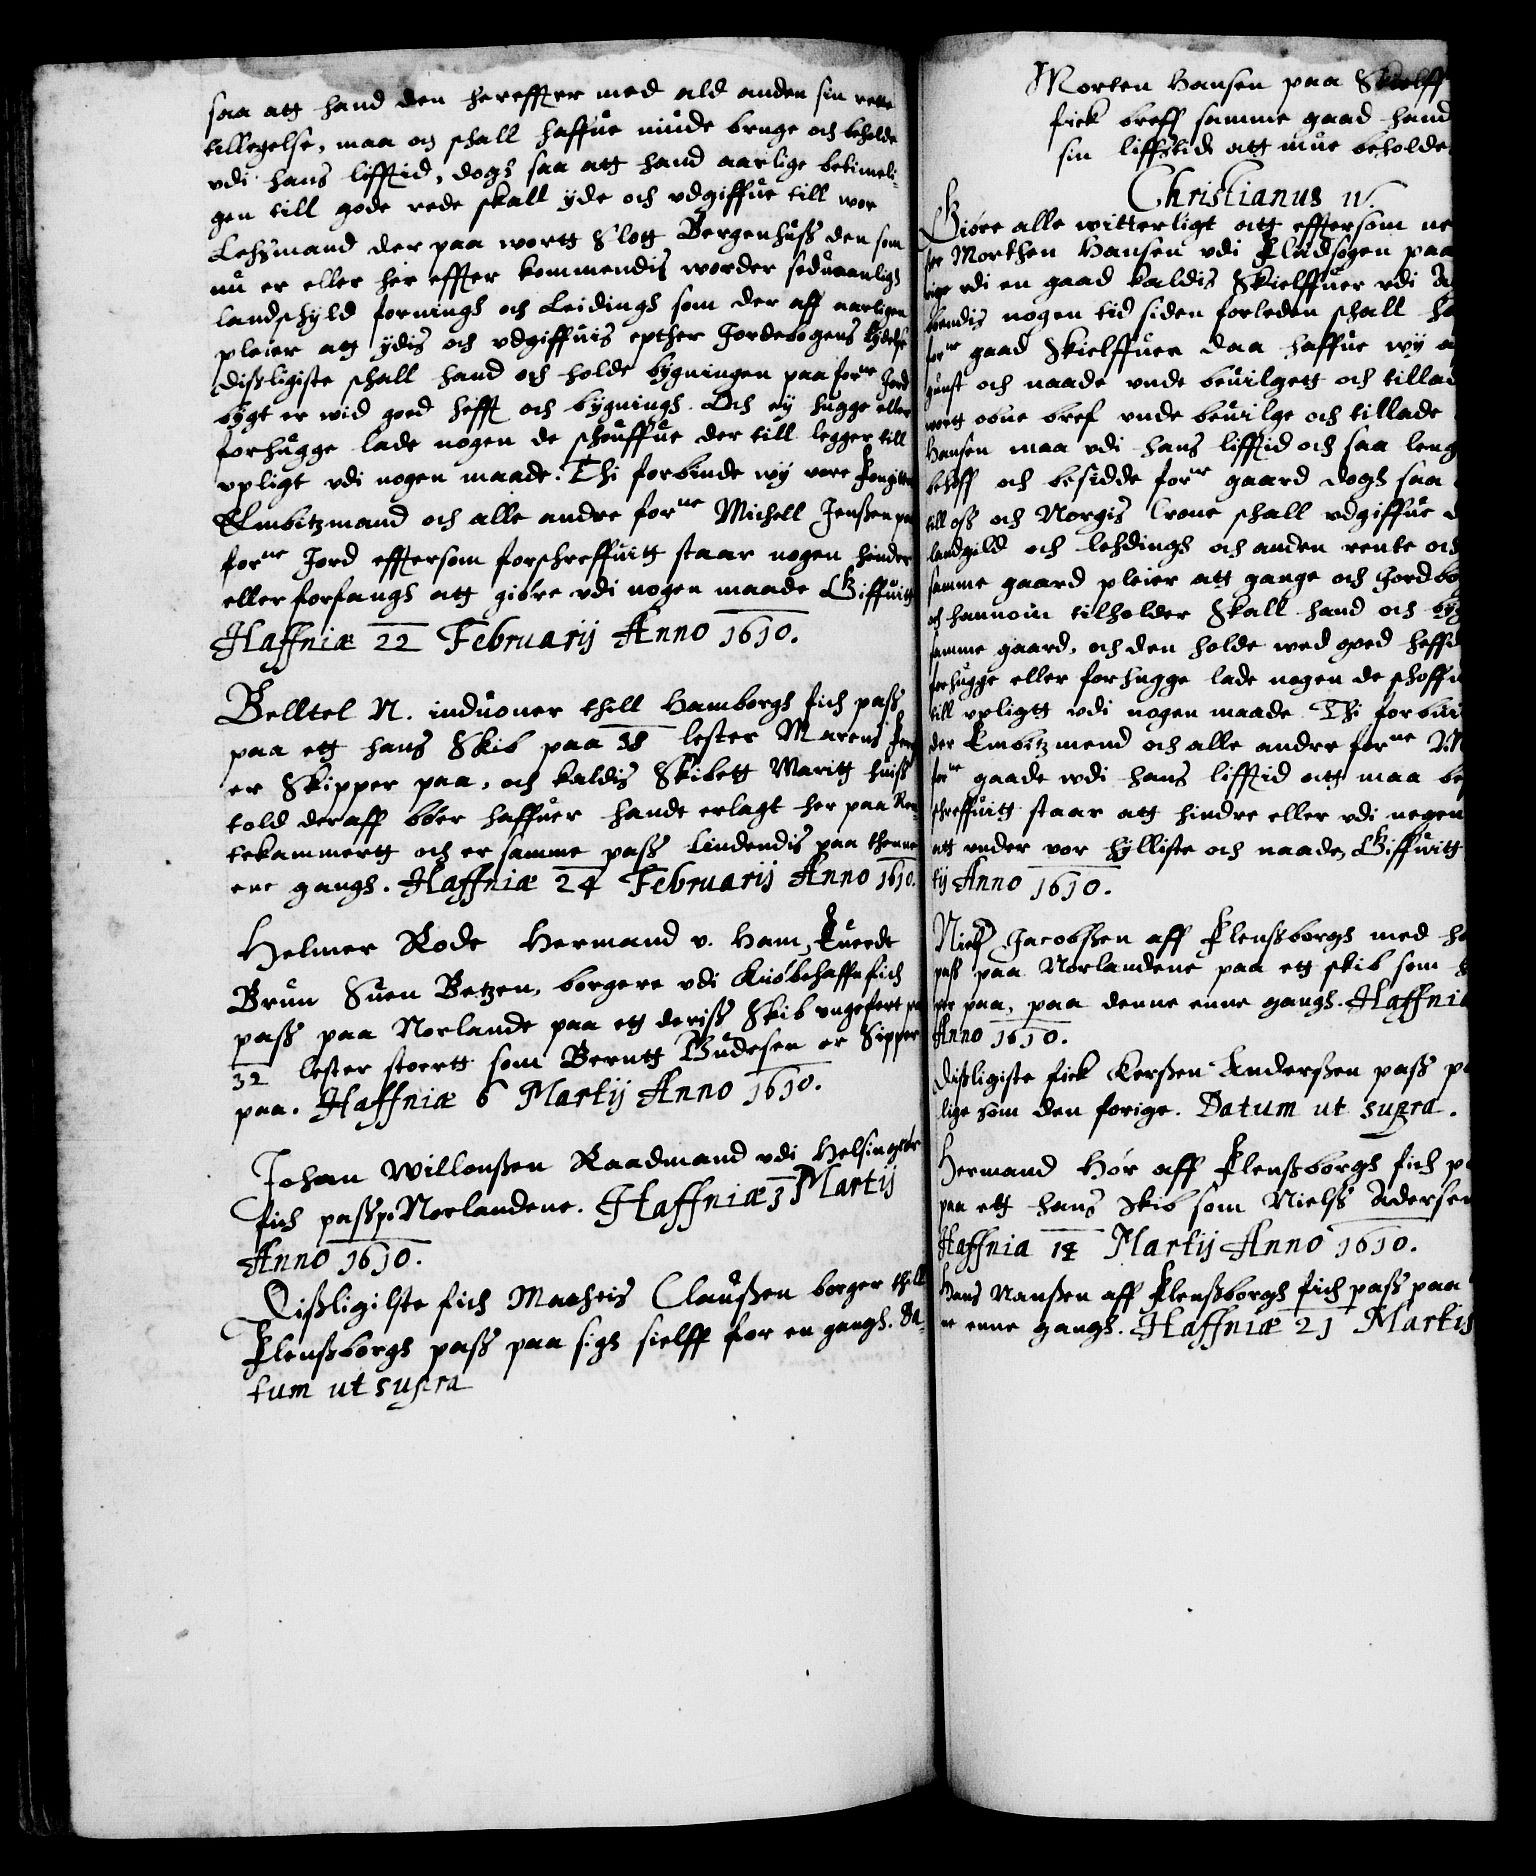 saa att hand den hereffter med ald anden sin rette
tillegelse, maa og schall haffue niude bruge och beholde
vdi hans lifftid, dogh saa att hand aarlige betimeli-
gen till gode rede skall yde och vdgiffue till vor
Lehsmand der paa wortt Slott Bergenhuss den som
nu er eller her effter kommendis worder seduaanligh
landschyld fornings och Leidings som der aff aarligen
pleier att ydis och vdgiffuis epther Jordebogens lydelse
Disligiste schall hand och holde bygningen paa forne Jord
bygt er wid goed hefft och bygnings. Och ey hugge eller
forhugge lade nogen de schouffue der till legger till
vpligt vdi nogen maade. Thi forbinde wy vore
Embitzmand och alle andre forne Michell Jenssen paa
forne Jord efftersom forschreffuitt staar nogen hinder
eller forfangh att giøre vdi nogen maade Giffuitt
Haffniæ 22 Februarij Anno 1610.
Belltel N. induoner thill Hamborgh fich pass
paa ett hans Skib paa 38 lester Marens
er Skipper paa, och kaldis Skibett Maritt huiss
told deraff bøer haffuer hande erlagt her paa Ren-
tekammertt och er samme pass Lindendis paa thenne
ene gangh. Haffniæ 24 Februarij Anno 1610.
Helmer Rode Hermand v. Ham, Euerdt
Brun Suen Betzen, borgere vdi Kiøbehaffn fich
pass paa Norlande paa ett deriss Skib vngefert paa
32 lester stoertt som Berntt Budesen er Sipper
paa. Haffniæ 6 Martij Anno 1610.
Johan Willomssen Raadmand vdi Helsingøer
fich pass pa Norlandene. Haffniæ 3 Martij
Anno 1610.
Disligilste fich Matheis Claussen borger thill
Flenssborgh pass paa sigh sielff for en gangh. Da-
tum ut supra
Morten Hansen paa Skielff
fick breff samme gaad hand
sin liffstid att mue beholde
Christianus IV.
Giøre alle witterligt att efftersom ne
Morthen Hansen vdi Fladsogen paa
vdi en gaad kaldis Skielffuer vdi
nogen tid siden forleden schall ha
forne gaad Skielffuer daa haffue wy a
gunst och naade vnde beuilgett och tillad
wortt obne bref vnde beuilge och tillade
Hansen maa vdi hans lifftid och saa leng
behoff och besidde forne gaard dogh saa
till oss och Norgis Crone schall vdgiffue
landgild och lehdingh och anden rente och
samme gaard pleier att gange och Jordbo
och hannom tilholder Skall hand och byg
samme gaard, och den holde wed goed heffd
forhugge eller forhugge lade nogen de schoffu
till vpligtt vdi nogen maade Thi forbiu
der Embitzmend och alle andre forne M
forne gaade vdi hans lifftid att maa be
schreffuitt staar att hindre eller vdi nogen
att vnder vor hylliste och naade, Giffuitt
tij Anno 1610.
Niels Jacobssen aff Flenssborgh med ha
pass paa Norlandene paa ett skib som
er paa, paa denne enne gangh. Haffniæ
Anno 1610.
Disligiste fick Kerssen Anderssen pass pa
lige som den forige. Datum ut supra.
Hermand Hør aff Flenssborgh fich pa
paa ett hans Skib som Nielss Adersen
Haffnia 14 Martij Anno 1610.
Hans Nanssen aff Flenssborgh fich pass paa
ne enne gangh. Haffniæ 21 Martij